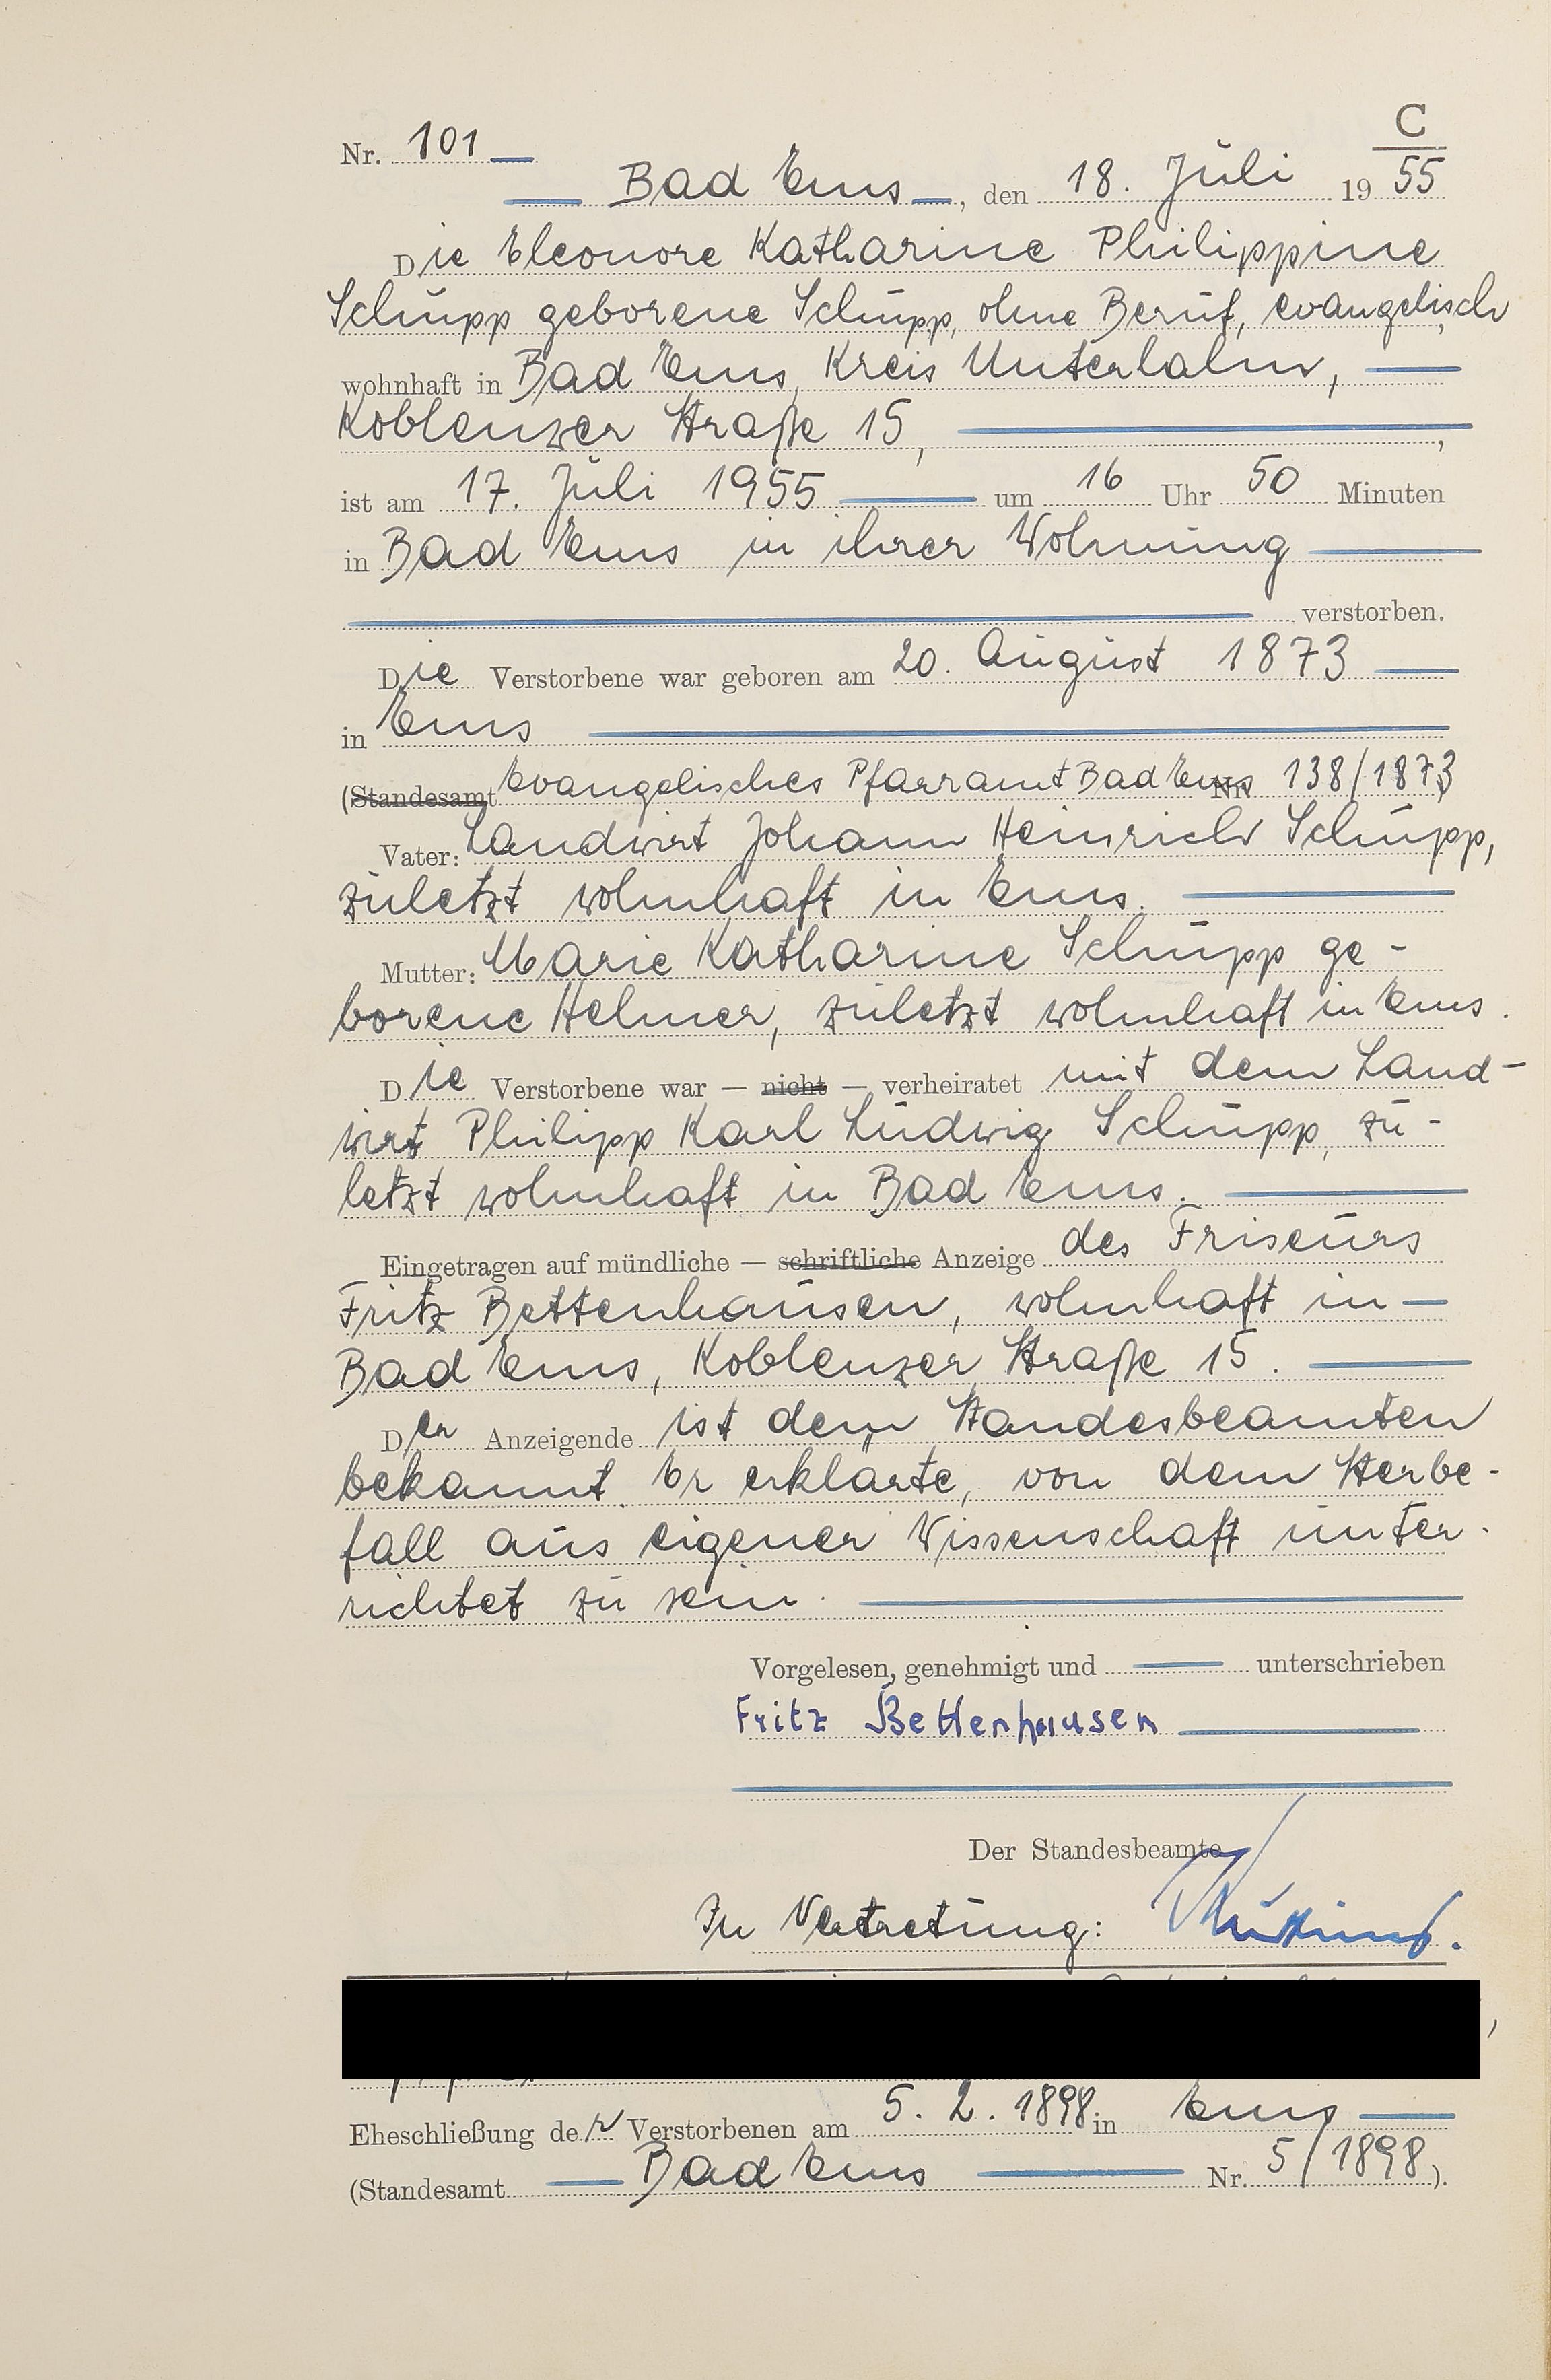 C
Nr. 101
Bad Ems, den 18. Juli 1955
Die Eleonore Katharine Philippine
Schupp geborene Schupp, ohne Beruf, evangelisch,
wohnhaft in Bad Ems, Kreis Unterlahn,
Koblenzer Straße 15,
ist am 17. Juli 1955 um 16 Uhr 50 Minuten
in Bad Ems in ihrer Wohnung
verstorben.
Die Verstorbene war geboren am 20. August 1873
in Ems
(Standesamt Evangelisches Pfarramt Bad Ems Nr. 138/1873)
Vater: Landwirt Johann Heinrich Schupp,
zuletzt wohnhaft in Ems.
Mutter: Marie Katharine Schupp ge-
borene Helmer, zuletzt wohnhaft in Ems.
Die Verstorbene war — nicht — verheiratet mit dem Land-
wirt Philipp Karl Ludwig Schupp, zu-
letzt wohnhaft in Bad Ems.
Eingetragen auf mündliche — schriftliche Anzeige des Friseurs
Fritz Bettenhausen, wohnhaft in
Bad Ems, Koblenzer Straße 15.
Der Anzeigende ist dem Standesbeamten
bekannt. Er erklärte, von dem Sterbe-
fall aus eigener Wissenschaft unter-
richtet zu sein.
Vorgelesen, genehmigt und unterschrieben
Fritz Bettenhausen
Der Standesbeamte
In Vertretung:
Eheschließung der Verstorbenen am 5. 2. 1898 in Ems
(Standesamt Bad Ems Nr. 5/1898).